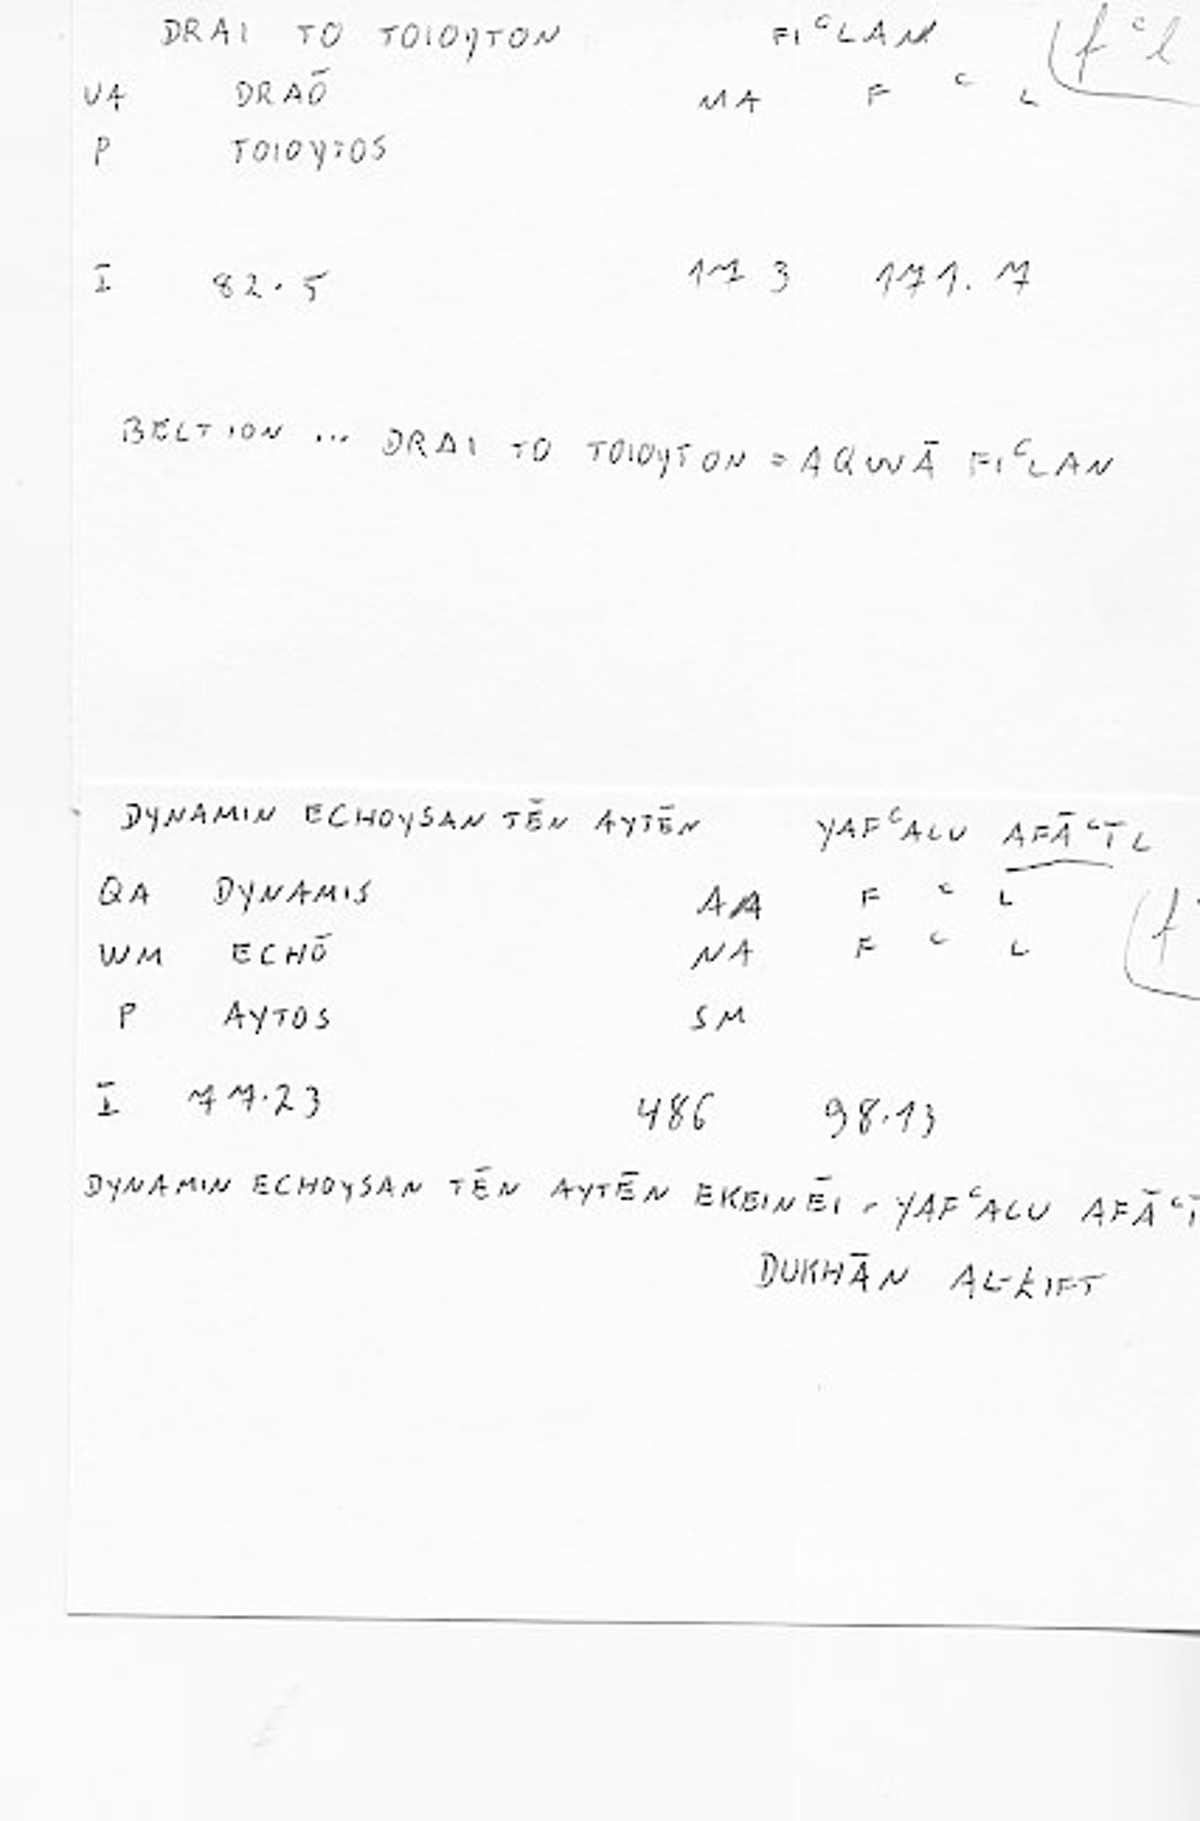 DRAI TO TOIOYTON FIᶜLAN (fᶜl
VA DRAŌ MA F ᶜ L
P TOIOYTOS
I 82.5 173 171.7
BELTION ... DRAI TO TOIOYTON = AQWĀ FIᶜLAN
DYNAMIN ECHOYSAN TĒN AYTĒN YAFᶜALU AFĀᶜĪL
QA DYNAMIS AA F ᶜ L (f
WM ECHŌ NA F ᶜ L
P AYTOS SM
I 77.23 486 98.13
DYNAMIN ECHOYSAN TĒN AYTĒN EKEINĒI = YAFᶜALU AFĀᶜĪ
DUKHĀN AL-